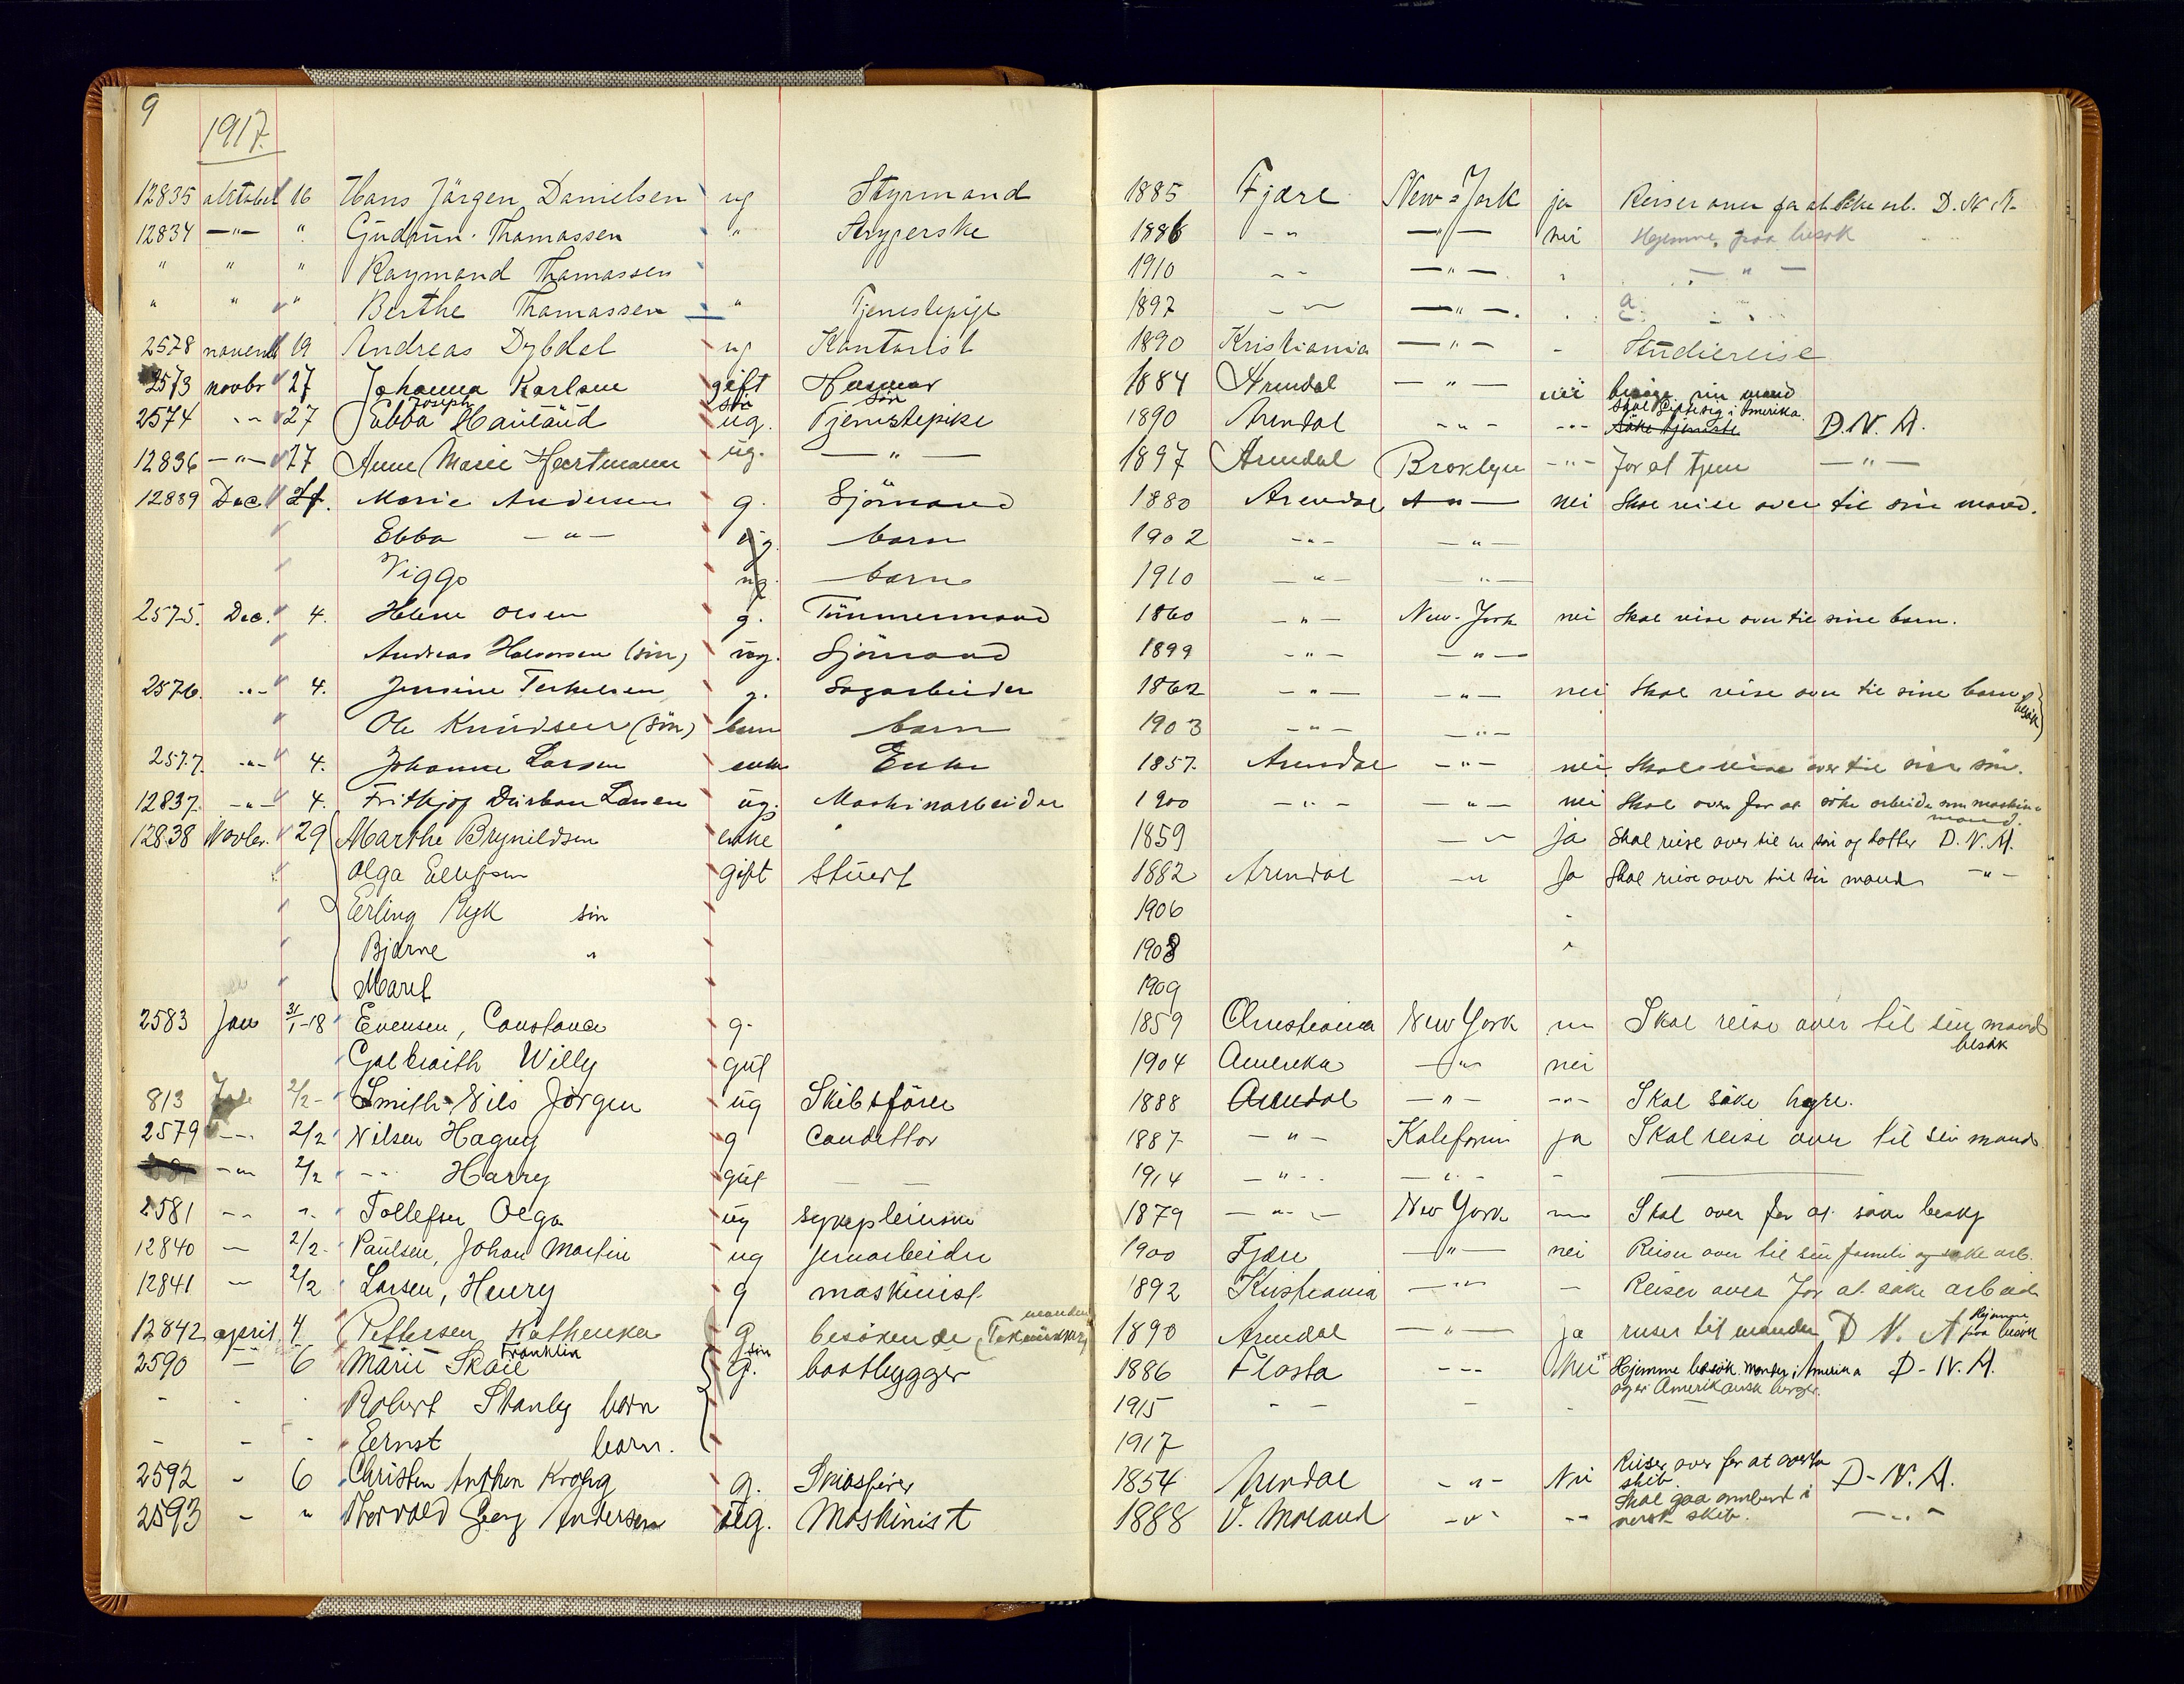 9
1917.
12835 oktober 16 Hans Jörgen Danielsen ug Styrmand 1885 Fjære New-York ja Reiser over for at söke arb. D. N. A.
12834 —"— " Gudrun Thomassen " Strygerske 1886 - " —"— nei Hjemme paa besøk
" " " Raymond Thomassen 1910 - - —"— . — " —
" " " Berthe Thomassen " Tjenestepige 1897 - — —"—.
2578 novemb 19 Andreas Dybdal ug Kontorist 1890 Kristiania —"— - Studiereise
2573 novbr 27 Johanna Karlsen gift Husmor 1884 Arendal —"— nei besöge sin mand
Joseph sön sön Skal gifte sig i Amerika.
2574 -- 27 Ebba Hauland ug. Tjenestepike 1890 Arendal -"- -"- Söke tjeneste D. N. A.
12836 —"— 27 Anne Marie Hertmann ug. —"— 1897 Arendal Broklyn -"- for at tjene —"—
12839 Dec. 4. Marie Andersen g. Sjömand 1880 Arendal —"— nei Skal reise over til sin mand.
Ebba —"— ug. barn 1902 -"- —"—
Viggo ug. barn 1910 —"— —"—
2575. Dec. 4. Helene Olsen g. Tömmermand 1860 —"— New-York nei Skal reise over til sine barn.
Andreas Halvorsen (sön) ug. Sjömand 1899 -"- —"—
2576. -"- 4. Jensine Terkelsen g. Sagarbeider 1862 -"- -"- nei Skal reise over til sine barn
besök
Ole Knudsen (sön) barn barn 1903 -"- -"-
2577. -"- 4. Johanne Larsen enke Enke 1857. Arendal -"- nei Skal reise over til sin sön.
12837. -"- 4. Frithjof Durban Larsen ug. Maskinarbeider 1900 -"- -"- nei Skal over for at söke arbeide som maskin
mand.
12838 Novbr. 29 Marthe Brynildsen enke " 1859 -- ja Skal reise over til en sön og dotter D. N. A.
Olga Ellefsen gift Stuert 1882 Arendal -"- Ja Skal reise over til sin mand -"-
Erling Ryk sön 1906 -
Bjarne " 1908 "
Marit 1909
2583 Jan 31/1-18 Evensen, Constance g. 1859 Christiania New York Skal reise over til sin mand
besök
Galbraith Willy gut 1904 Amerika -"- nei
813 2/2- Smith Nils Jörgen ug Skibsförer 1888 Arendal -"- -"- Skal söke hyre.
2579 -- 2/2 Nilsen Hagny g Condittor 1887 -"- Kaleforni ja Skal reise over til sin mand
-"- 2/2 -- Harry gut — — 1914 -"- -"- -
2581 -- "- Tollefsen Olga ug sykepleierske 1879 -"- New York Skal over for at söke beskj
12840 - 2/2- Paulsen, Johan Martin ug jernarbeider 1900 Fjære -"- nei Reiser over til sin famili og söke arb.
12841 - 2/2 Larsen, Henry g maskinist 1892 Kristiania -"- - Reiser over for at söke arbeid
manden Hjemme
12842 april 4 Pettersen Kathenka g. besökende 1890 Arendal -"- ja reiser til manden D N. A paa besök
Franklin sön
2590 - 6 Marie Skaie g. baatbygger 1886 Flosta --- nei Hjemme besök. Manden i Amerika D-N. A.
og er Amerikansk borger.
- - . Robert Stanley barn 1915 - - - -
- - - Ernst barn. 1917
Reiser over for at overta
2592 - 6 Christen Anthon Krohg g. Skibsförer 1854 Arendal -"- Nei skib. D-N. A.
Skal gaa ombord i
2593 - " Thorvald Georg Andersen ug. Maskinist 1888 V. Moland -"- -- norsk skib. -"-